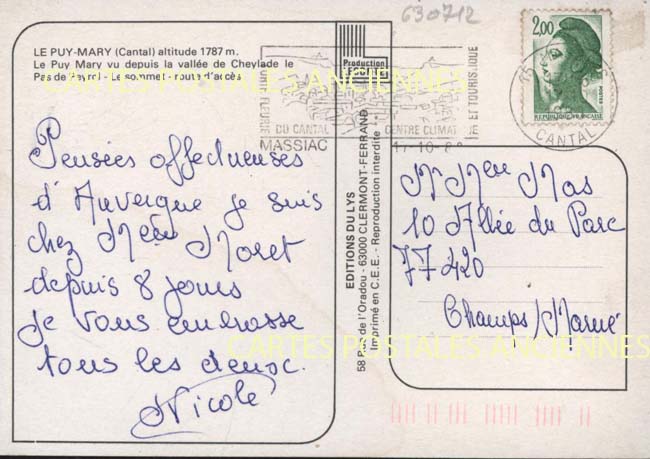 630712
LE PUY-MARY (Cantal) altitude 1787 m.
Le Puy Mary vu depuis la vallée de Cheylade le
Pas de Peyrol - Le sommet - route d'accès
Pensées affectueuses
d'Auvergne je suis
chez Mme Moret
depuis 8 jours
je vous embrasse
tous les deux.
Nicole
Production
EDITIONS DU LYS
58 Rue de l'Oradou - 63000 CLERMONT-FERRAND
Imprimé en C.E.E. - Reproduction interdite
FLEURIE
DU CANTAL
MASSIAC
ET TOURISTIQUE
CENTRE CLIMATIQUE
17-10-8
2,00
REPUBLIQUE FRANÇAISE
POSTES
15
CANTAL
M Mme Mas
10 Allée du Parc
77420
Champs/Marne
CARTES POSTALES ANCIENNES
CARTES POSTALES ANCIENNES